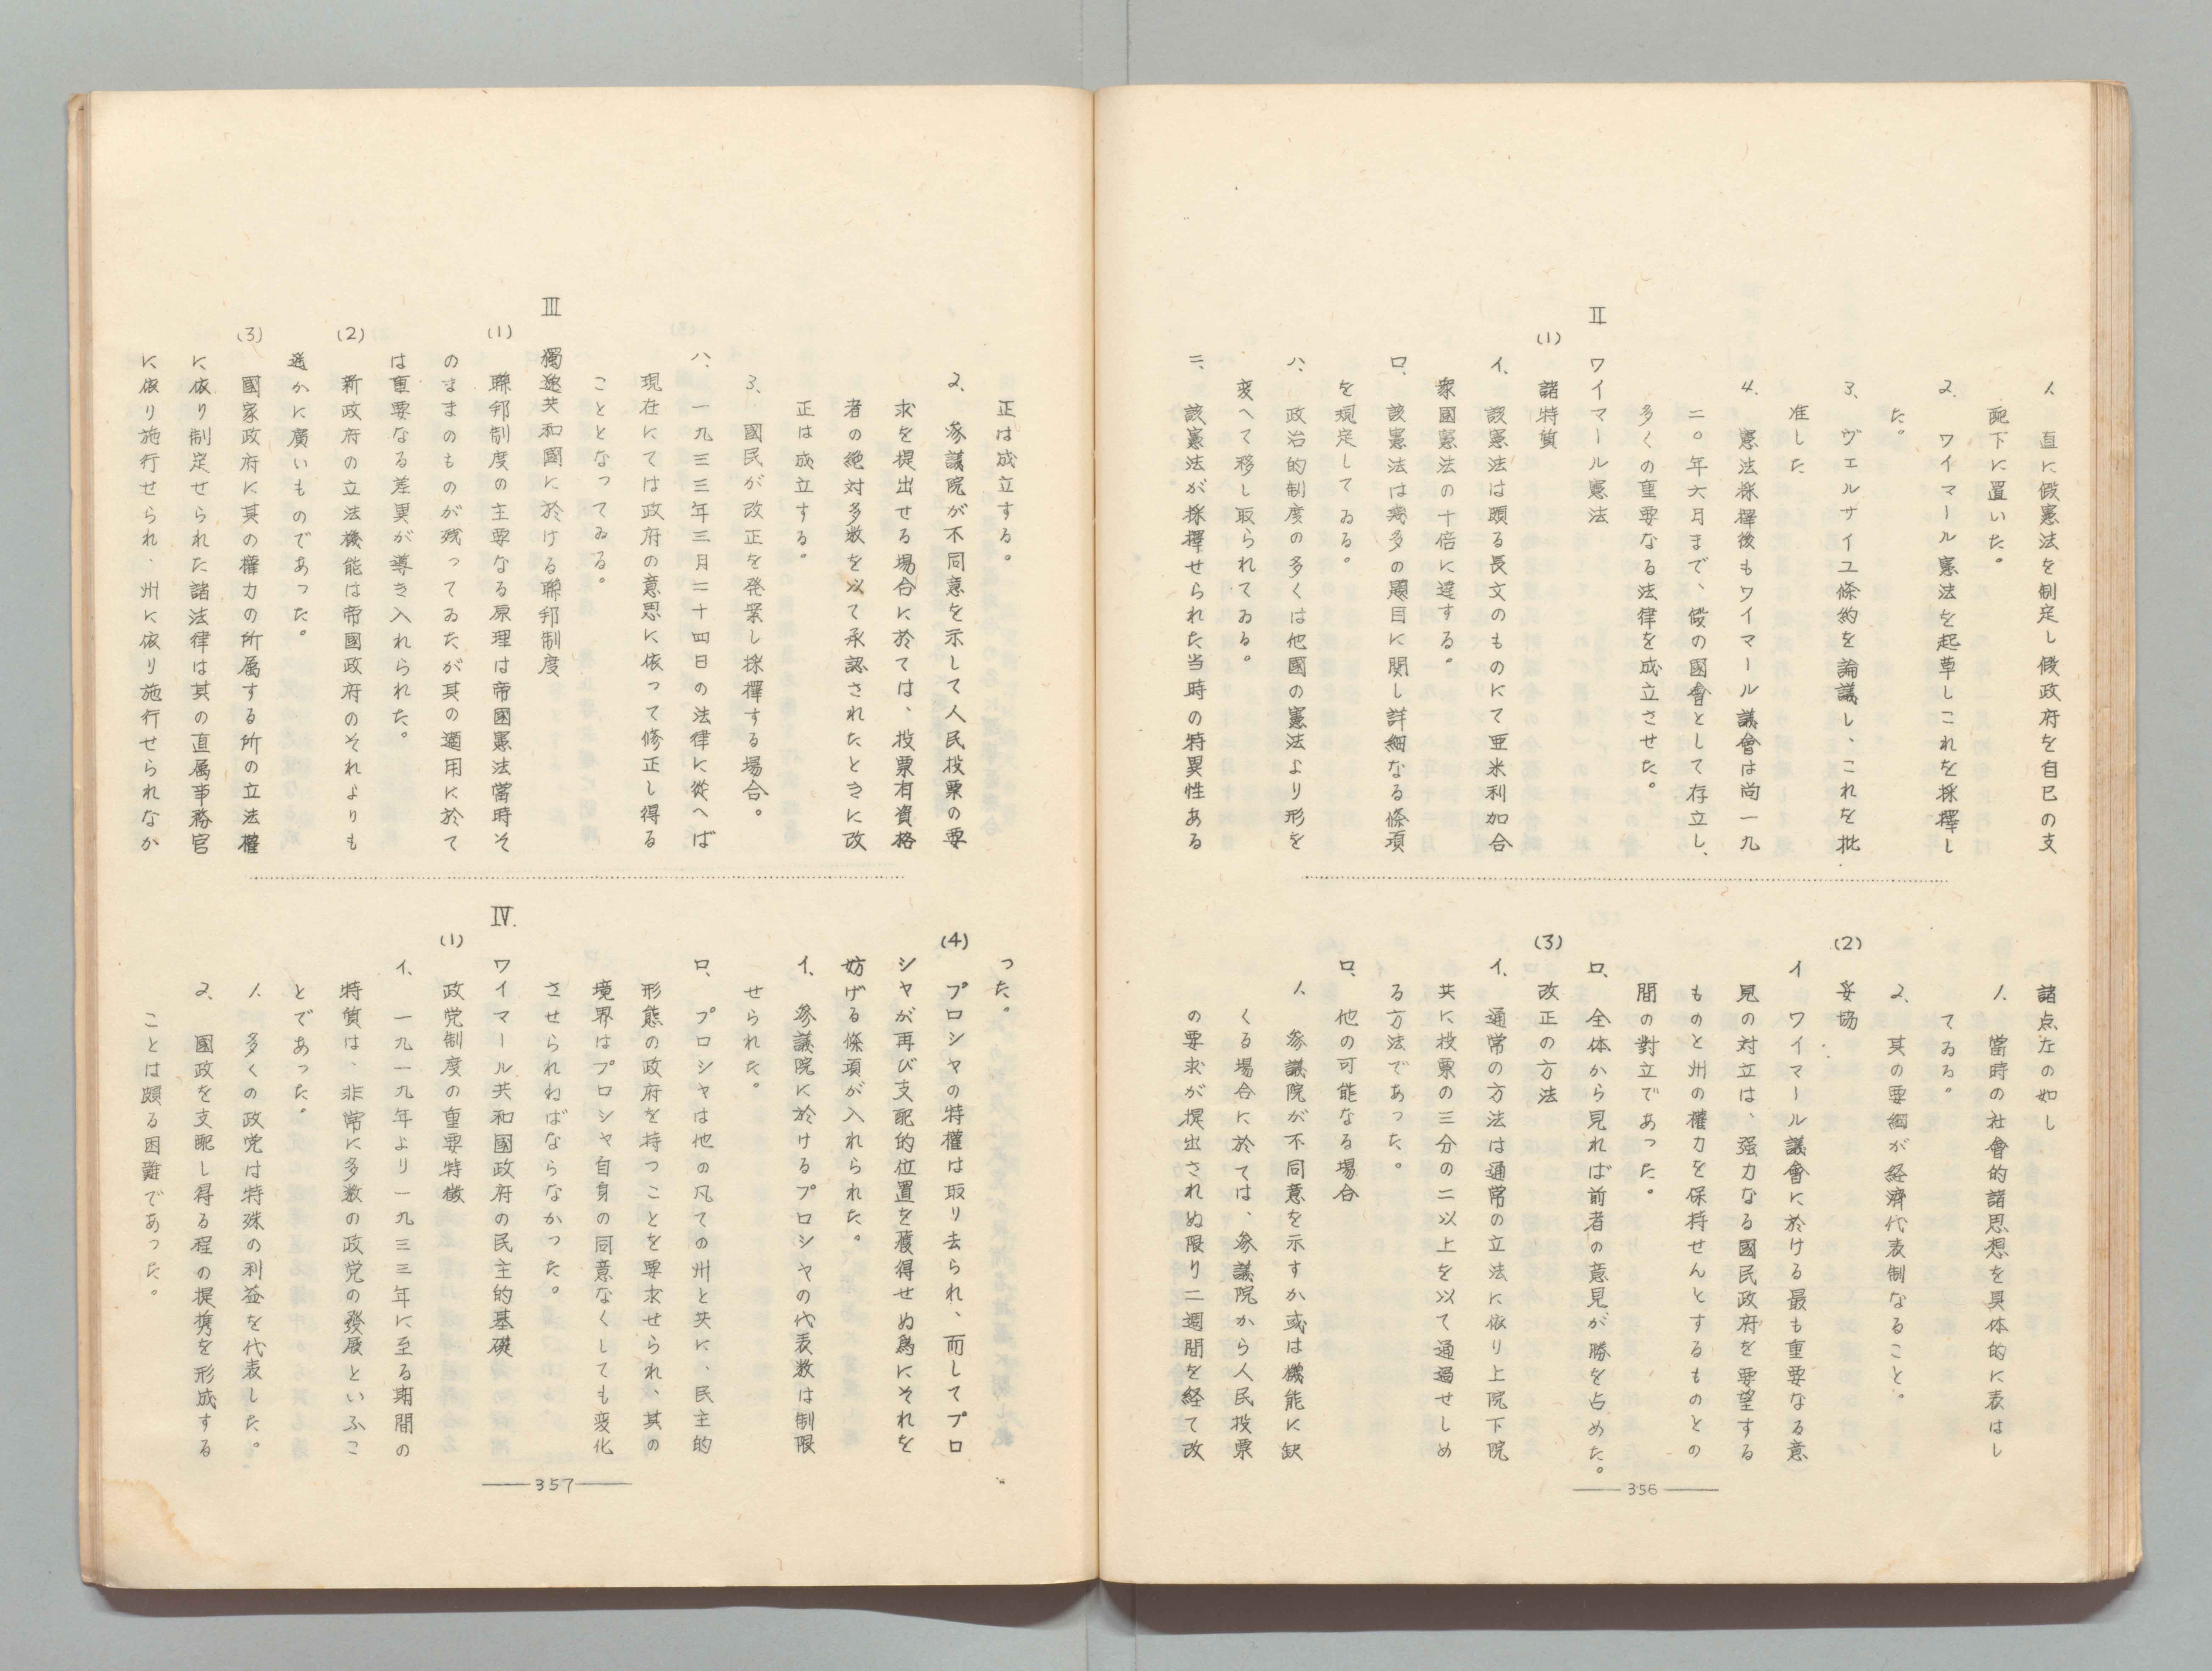 1. 直に假憲法を制定し假政府を自己の支
配下に置いた。
2. ワイマール憲法を起草しこれを採擇し
た。
3. ヴェルサイユ條約を論議し、これを批
准した
4. 憲法採擇後もワイマール議會は尚一九
二〇年六月まで、假の國會として存立し、
多くの重要なる法律を成立させた。
II ワイマール憲法
(1) 諸特質
イ、該憲法は頗る長文のものにて亜米利加合
衆國憲法の十倍に達する。
ロ、該憲法は幾多の題目に関し詳細なる條項
を規定してゐる。
ハ、政治的制度の多くは他國の憲法より形を
変へて移し取られてゐる。
ニ、該憲法が採擇せられた当時の特異性ある
諸点左の如し
1. 當時の社會的諸思想を具体的に表はし
てゐる。
2. 其の要綱が経済代表制なること。
(2) 妥協
イ ワイマール議會に於ける最も重要なる意
見の対立は、强力なる國民政府を要望する
ものと州の權力を保持せんとするものとの
間の對立であった。
ロ、全体から見れば前者の意見が勝を占めた。
(3) 改正の方法
イ、通常の方法は通常の立法に依り上院下院
共に投票の三分の二以上を以て通過せしめ
る方法であった。
ロ、他の可能なる場合
1. 参議院が不同意を示すか或は機能に缺
くる場合に於ては、参議院から人民投票
の要求が提出されぬ限り二週間を経て改
356
正は成立する。
2. 参議院が不同意を示して人民投票の要
求を提出せる場合に於ては、投票有資格
者の絶対多数を以て承認されたときに改
正は成立する。
3. 國民が改正を発案し採擇する場合。
ハ、一九三三年三月二十四日の法律に從へば
現在にては政府の意思に依って修正し得る
こととなってゐる。
III 獨逸共和國に於ける聯邦制度
(1) 聯邦制度の主要なる原理は帝國憲法當時そ
のままのものが残ってゐたが其の適用に於て
は重要なる差異が導き入れられた。
(2) 新政府の立法機能は帝國政府のそれよりも
遙かに廣いものであった。
(3) 國家政府に其の權力の所属する所の立法權
に依り制定せられた諸法律は其の直属事務官
に依り施行せられ、州に依り施行せられなか
った。
(4) プロシヤの特權は取り去られ、而してプロ
シヤが再び支配的位置を獲得せぬ爲にそれを
妨げる條項が入れられた。
イ、参議院に於けるプロシヤの代表数は制限
せられた。
ロ、プロシヤは他の凡ての州と共に、民主的
形態の政府を持つことを要求せられ、其の
境界はプロシヤ自身の同意なくしても変化
させられねばならなかった。
IV. ワイマール共和國政府の民主的基礎
(1) 政党制度の重要特徴
イ、一九一九年より一九三三年に至る期間の
特質は、非常に多数の政党の發展といふこ
とであった。
1. 多くの政党は特殊の利益を代表した。
2. 國政を支配し得る程の提携を形成する
ことは頗る困難であった。
357